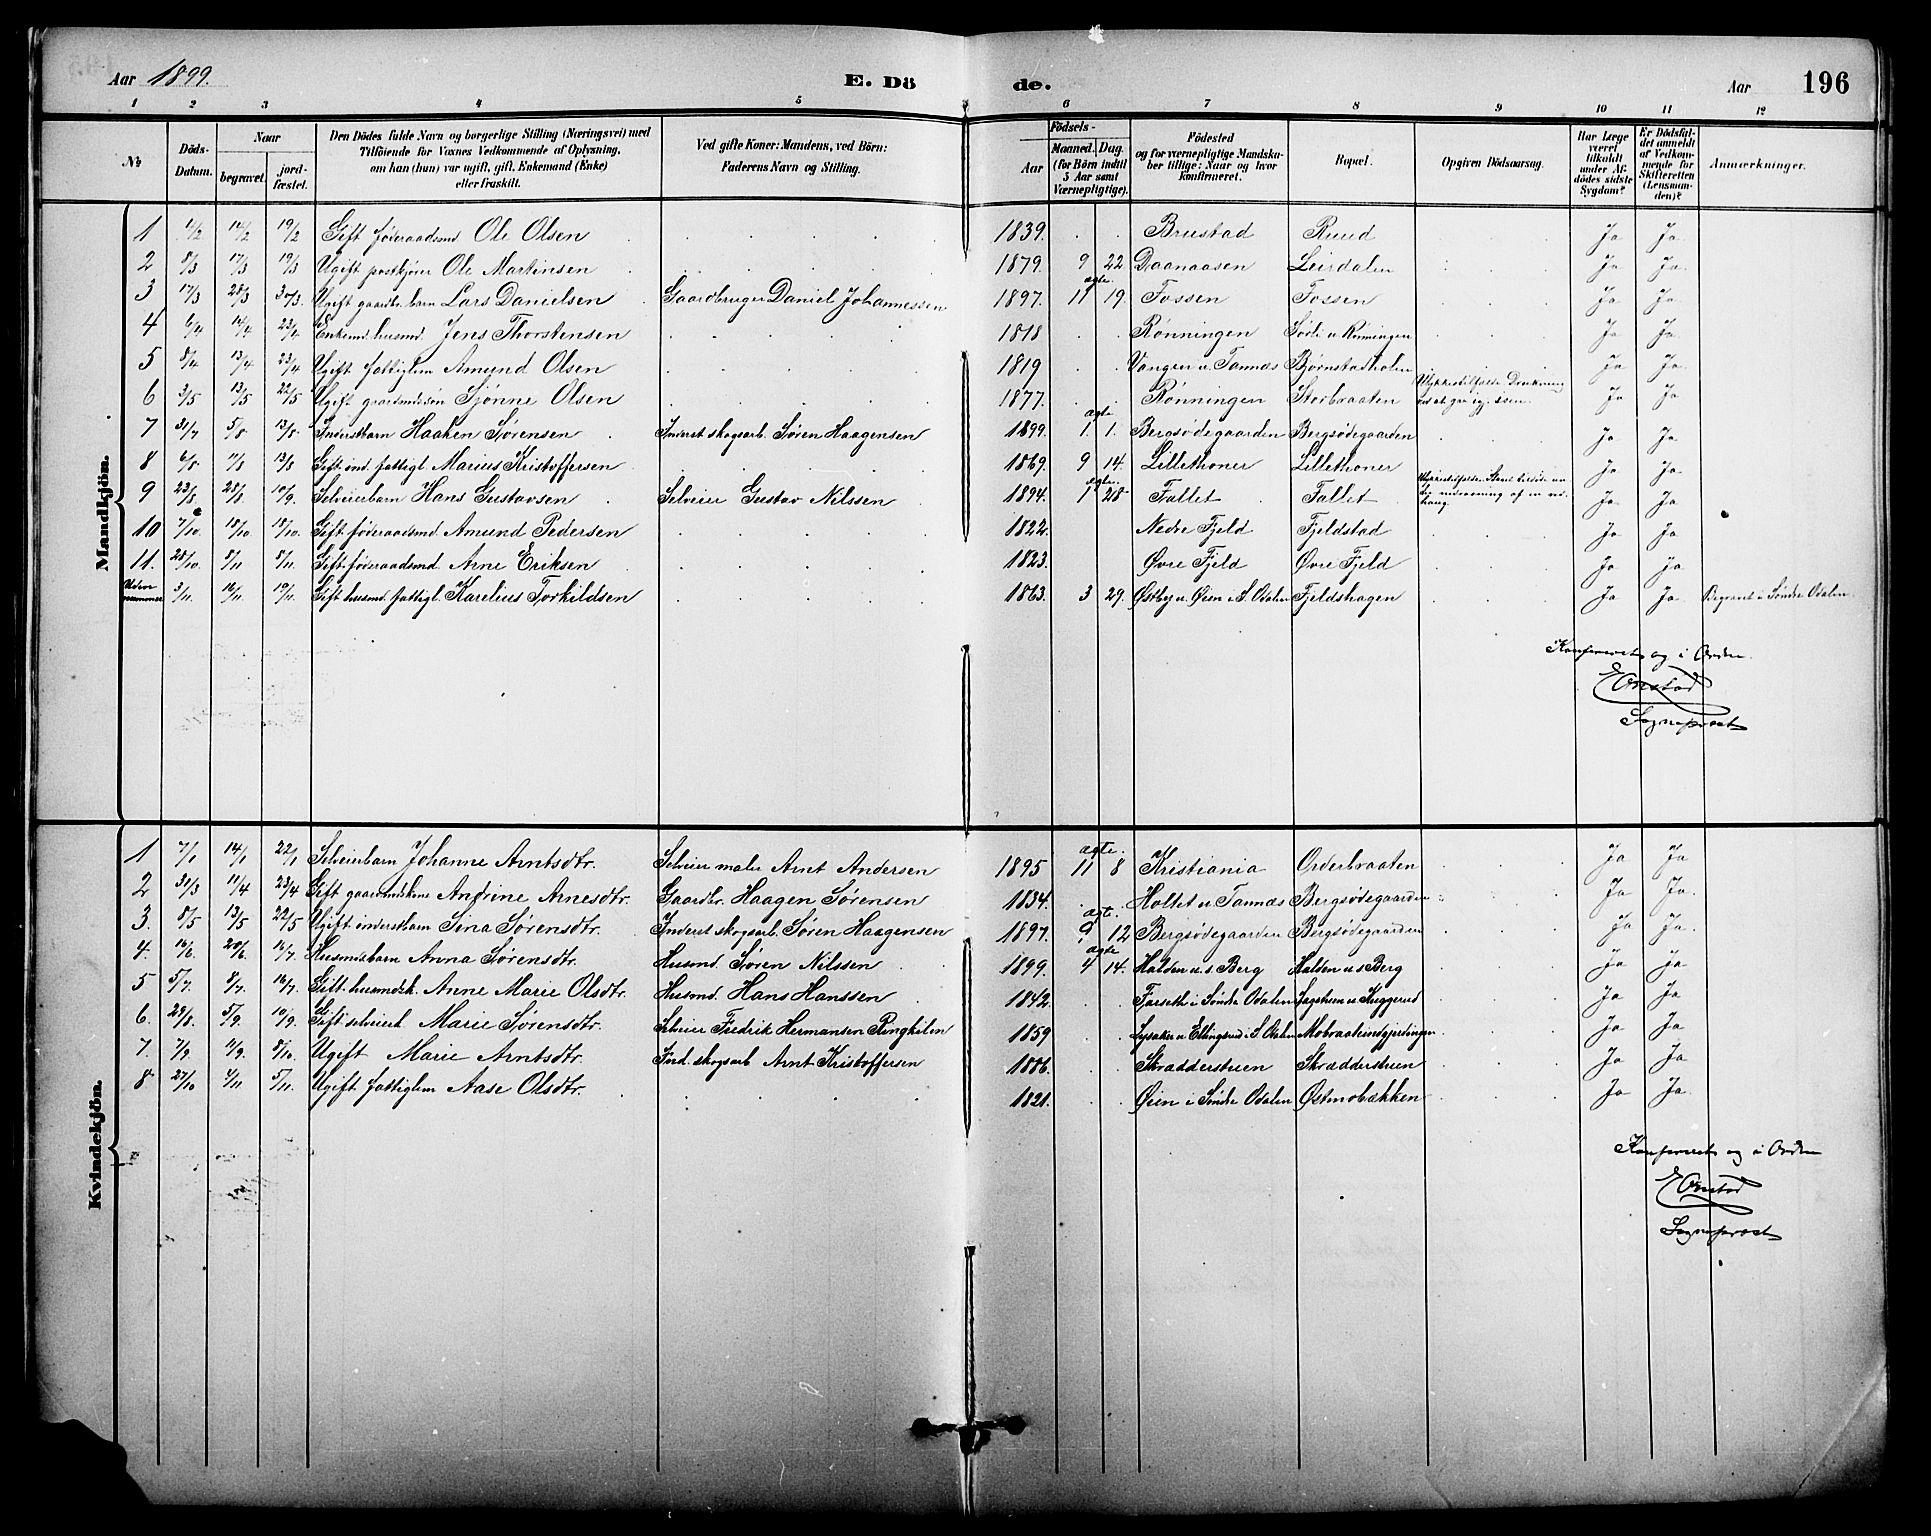 Aar 1899.
E. Dö de.
Aar 196
1 2 3 4 5 6 7 8 9 10 11 12
No
Döds-Datum.
Naar begravet. jord-fæstet.
Den Dödes fulde Navn og borgerlige Stilling (Næringsvei) med
Tilföiende for Voxnes Vedkommende af Oplysning,
om han (hun) var ugift, gift, Enkemand (Enke)
eller fraskilt.
Ved gifte Koner: Mandens, ved Börn:
Faderens Navn og Stilling.
Födsels-
Aar
Maaned. Dag.
(for Börn indtil
5 Aar samt
Værnepligtige).
Födested
og for værnepligtige Mandska-
ber tillige: Naar og hvor
konfirmeret.
Bopæl.
Opgiven Dödsaarsag.
Har Læge
været
tilkaldt
under Af-
dödes sidste
Sygdom?
Er Dödsfal-
det anmeldt
af Vedkom-
mende for
Skifteretten
(Lensman-
den)?
Anmærkninger.
Mandkjön.
1 14/2 19/2 Gift føderaadsmd Ole Olsen 1839. Brustad Ruud Ja Ja
2 8/3 17/3 19/3 Ugift postkjører Ole Martinsen 1879. 9 22 Daanaasen Leirdalen Ja Ja.
3 17/3 28/3 3/3 Ugift gaardbr.barn Lars Danielsen Gaardbruger Daniel Johannessen 1897. 11 ægte. 19. Fossen Fossen Ja Ja.
4 6/4 14/4 23/4 Enkemd. husmd. Jens Thorstensen 1818 Rønningen Sørli u Rønningen Ja Ja.
5 8/4 13/4 23/4 Ugift fattiglem Amund Olsen 1819 Vangen u. Tannæs Bjørnstadholen Ja Ja
6 3/5 13/5 22/5 Ugift gaardmdssøn Sjønne Olsen 1877. Rønningen Storbraaten Ulykkestilfælde Drukning Ja Ja
7 31/7 5/8 13/8 Inderstbarn Haaken Sørensen Inderst skogsarb. Søren Haagensen 1899. ægte 1. 1. Bergsødegaarden Bergsødegaarden Ja Ja.
8 6/8 11/8 13/8 Gift ind. fattigl. Marius Kristoffersen 1869. 9 14. Lillethoner Lillethoner Ja Ja.
9 23/8 28/8 10/9 Selveierbarn Hans Gustavsen Selveier Gustav Nilssen 1894. ægte. 1 28 Fallet Fallet Ulykkestilfælde. Ja Ja.
10 7/10 18/10 18/10. Gift føderaadsmd Amund Pedersen 1822. Nedre Fjeld Fjeldstad Ja Ja
11. 28/10 8/11 8/11. Gift føderaadsmd. Arne Eriksen 1823. Øvre Fjeld Øvre Fjeld Ja Ja
Uden nummer 3/11. 16/11. 19/11. Gift husmd. fattigl. Karelius Torkildsen 1863. 3 29. Østby u. Øien i S. Odalen Fjeldshagen Ja Ja. Begravet i Søndre Odalen.
Konfereret og i Orden.
E Onstad
Sogneprest
Kvindekjön.
1 7/1 14/1 22/1 Selveierbarn Johanne Arntsdtr. Selveier maler Arnt Andersen 1895 ægte. 11 8 Kristiania Orderbraaten Ja Ja
2 31/3 11/4 23/4 Gift gaardmdskone Andrine Arnesdtr. Gaardbr. Haagen Sørensen 1834. Holtet u Tannæs Bergsødegaarden Ja Ja.
3. 8/5 13/5 22/5 Ugift inderstbarn Sina Sørensdtr. Inderst skogsarb. Søren Haagensen 1897. ægte. 9 12 Bergsødegaarden Bergsødegaarden Ja Ja.
4. 14/6. 20/6. 16/7. Husmdsbarn Anna Sørensdtr. Husmd. Søren Nilssen 1899. ægte 4 14. Holden u. s. Berg Holden u s Berg Ja Ja
5 5/7. 8/7. 16/7. Gift husmdsk. Anne Marie Olsdtr. Husmd. Hans Hanssen 1842. Farseth i Søndre Odalen Sagstuen u Kuggerud Ja Ja
6. 29/8. 5/9. 10/9. Gift selveierk Marie Sørensdtr. Selveier Fredrik Hermansen Ringhilen 1859 Lysaker u Ellingsrud i S. Odalen Mobraateindgjerdingen Ja Ja
7. 7/9. 11/9. 8/10. Ugift Marie Arntsdtr. Ind. skogsarb Arnt Kristoffersen 1886. Skrædderstuen Skrædderstuen Ja Ja
8 27/10 4/11 5/11. Ugift fattiglem Aase Olsdtr. 1821. Øien i Søndre Odalen Østmobækken Ja Ja.
Konfereret og i Orden
E Onstad
Sogneprest